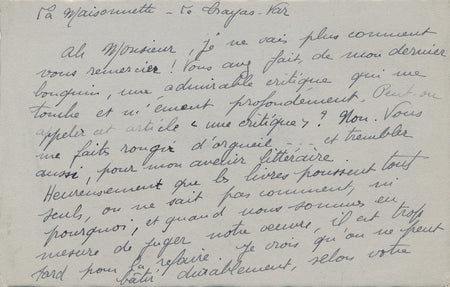 La Maisonnette - Le Trayas - Var
Ah Monsieur, je ne sais plus comment
vous remercier ! Vous avez fait, de mon dernier
bouquin, une admirable critique qui me
touche et m'émeut profondément. Peut-on
appeler cet article "une critique" ? Non. Vous
me faites rougir d'orgueil .... et trembler
aussi, pour mon avenir littéraire.
Heureusement que les livres poussent tout
seuls, on ne sait pas comment, ni
pourquoi, et quand nous sommes en
mesure de juger notre œuvre, il est trop
tard pour la refaire. Je crois qu'on ne peut
bâtir durablement, selon votre